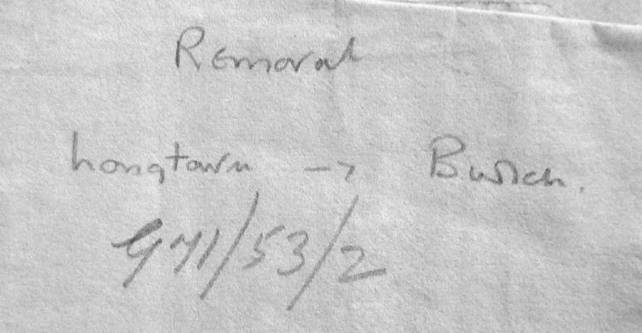 Removal
Longtown →
G71/53/2